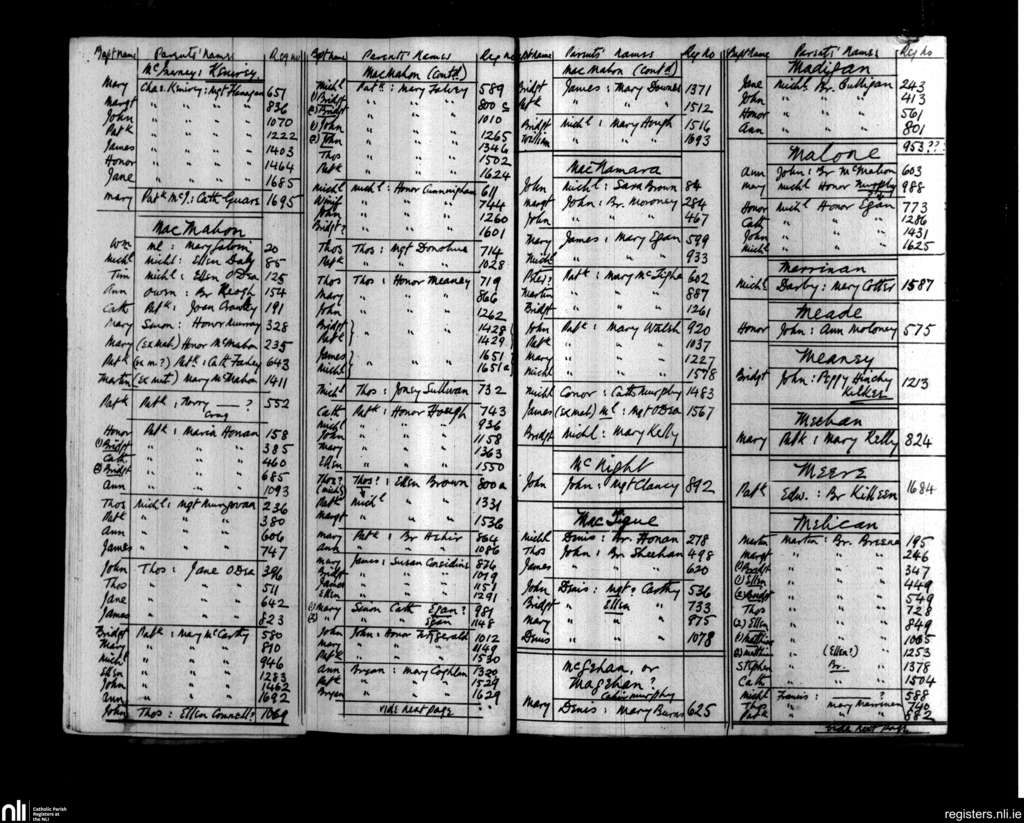 Bapt name Parents' names Reg no
McInerney: Kinnirey
Mary Chas. Kenirey: Mgt Flanagan 651
Margt " " " " 836
John " " " " 1070
Patk " " " " 1222
James " " " " 1403
Honor " " " " 1464
Jane " " " " 1685
Mary Patk McI: Cath 1695
MacMahon
Wm Ml: Mary 20
Michl Michl: Ellen Daly 85
Tim Michl: Ellen O'Dea 125
Ann Owen: Br Keogh 154
Cath Patk: Joan Crowley 191
Mary Simon: Honor Murray 328
Mary (ex mah) Honor McMahon 235
Patk (ex m?) Patk: Cath Fahey 643
Martin (ex mat) Mary McMahon 1411
Patk Patk: Norry — ? 552
Craig
Honor Patk: Maria Honan 158
(1) Bridgt " " " 385
Cath " " " 460
(2) Bridgt " " " 685
Ann " " " 1093
Thos Michl: Mgt Mungovan 236
Patk " " " 380
Ann " " " 606
James " " " 747
John Thos: Jane O'Dea 396
Thos " " " 511
Jane " " " 642
James " " " 823
Bridgt Patk: Mary McCarthy 580
Mary " " " 810
Michl " " " 946
Ellen " " " 1283
John " " " 1462
Ann " " " 1692
John Thos: Ellen Connell? 1069
Bapt name Parents' Names Reg no
MacMahon (Contd)
Michl Patk: Mary Falvey 589
(1) Bridgt " " " 800
(2) Bridgt " " " 1010
(1) John " " " 1265
(2) John " " " 1346
Thos " " " 1502
Patk " " " 1624
Michl Michl: Honor Cunningham 611
Winif " " " 744
John " " " 1260
Bridgt? " " " 1601
Thos Thos: Mgt Donohue 714
Patk " " " 1028
Thos Thos: Honor Meaney 719
Mary " " " 866
John " " " 1262
Bridgt } " " " 1428 }
Patk } 1429
James } " " " 1651 }
Michl } 1651a
Michl Thos: Joney Sullivan 732
Cath Patk: Honor Hough 743
Michl " " " 936
John " " " 1158
Mary " " " 1363
Ellen " " " 1550
Thos? Thos?: Ellen Brown 800a
(Michl)
Patk Michl " " 1331
Margt " " " 1536
Mary Patk: Br Hehir 864
Ann " " " 1086
Mary James: Susan Considine 876
Bridgt " " " 1019
James " " " 1151
Ellen " " " 1291
(1) Mary Simon Cath Egan? 981
(2) " " " Egan 1148
John John: Honor Fitzgerald 1012
Mary " " " 1149
Patk " " " 1530
Ann Bryan: Mary Coghlan 1320
Patk " " " 1529
Bryan " " " 1629
vide next page
Bapt Name Parents' names Reg no
MacMahon (Contd)
Bridgt James: Mary Downes 1371
Patk " " " 1512
Bridgt Michl: Mary Hough 1516
William " " " 1693
MacNamara
John Michl: Sara Brown 84
Margt John: Br. Moroney 284
John " " " 467
Mary James: Mary Egan 599
Michl " " " 933
Peter? Patk: Mary McTighe 602
Martin " " " 887
Bridgt " " " 1261
John Patk: Mary Walsh 920
Patk " " " 1037
Mary " " " 1227
Michl " " " 1578
Michl Conor: Cath Murphy 1483
James (ex mah) Ml: Mgt O'Dea 1567
Bridgt Michl: Mary Kelly
McNight
John John: Mgt Clancy 892
MacTigue
Michl Denis: Br. Honan 278
Thos John: Br Sheehan 498
James " " " 620
John Denis: Mgt? Carthy 536
Bridgt " Ellen " 733
Mary " " " 975
Denis " " " 1078
McGehan, or
Magehan?
Mary Denis: Mary Burns 625
Bapt Name Parents' Names Reg no
Madigan
Jane Michl: Br. Culligan 243
John " " " 413
Honor " " " 561
Ann " " " 801
953??
Malone
Ann John: Br McMahon 603
Mary Michl Honor Murphy 988
Honor Michl Honor Egan 773
Cath " " " 1286
John " " " 1431
Michl " " " 1625
Marrinan
Michl Darby: Mary Cotter 1587
Meade
Honor John: Ann Moloney 575
Meaney
Bridgt John: Peggy Hinchy 1213
Kilkee
Meehan
Mary Patk: Mary Kelly 824
Meere
Patk Edw.: Br Killeen 1684
Melican
Martin Martin: Br. Breene 195
Margt " " " 246
(1) Bridgt " " " 347
(1) Ellen " " " 449
(2) Bridgt " " " 549
Thos " " " 728
(2) Ellen " " " 849
(1) Mathw " " " 1065
(2) Mathw " (Ellen?) " 1253
Stephen " Br. " 1378
Cath " " " 1504
Michl Francis: — ? 588
Thos " Mary Marrinan 740
Patk " " " 882
vide next page
nli
Catholic Parish
Registers at
the NLI
registers.nli.ie